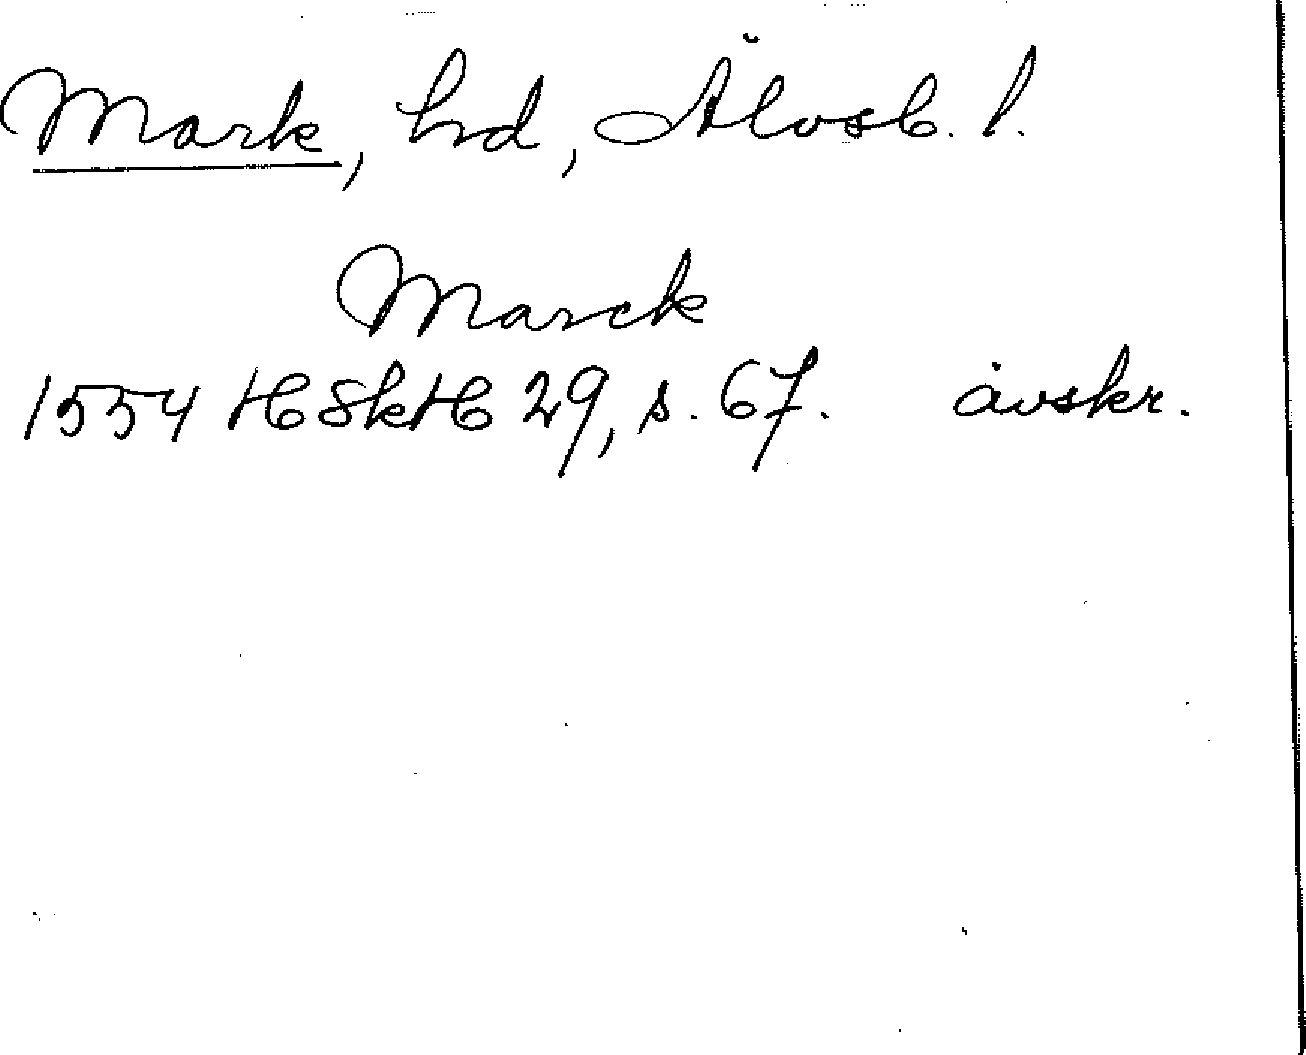 Mark, hd, Älvsb. l.
Marck
1554 HSkH 29, s. 67. avskr.